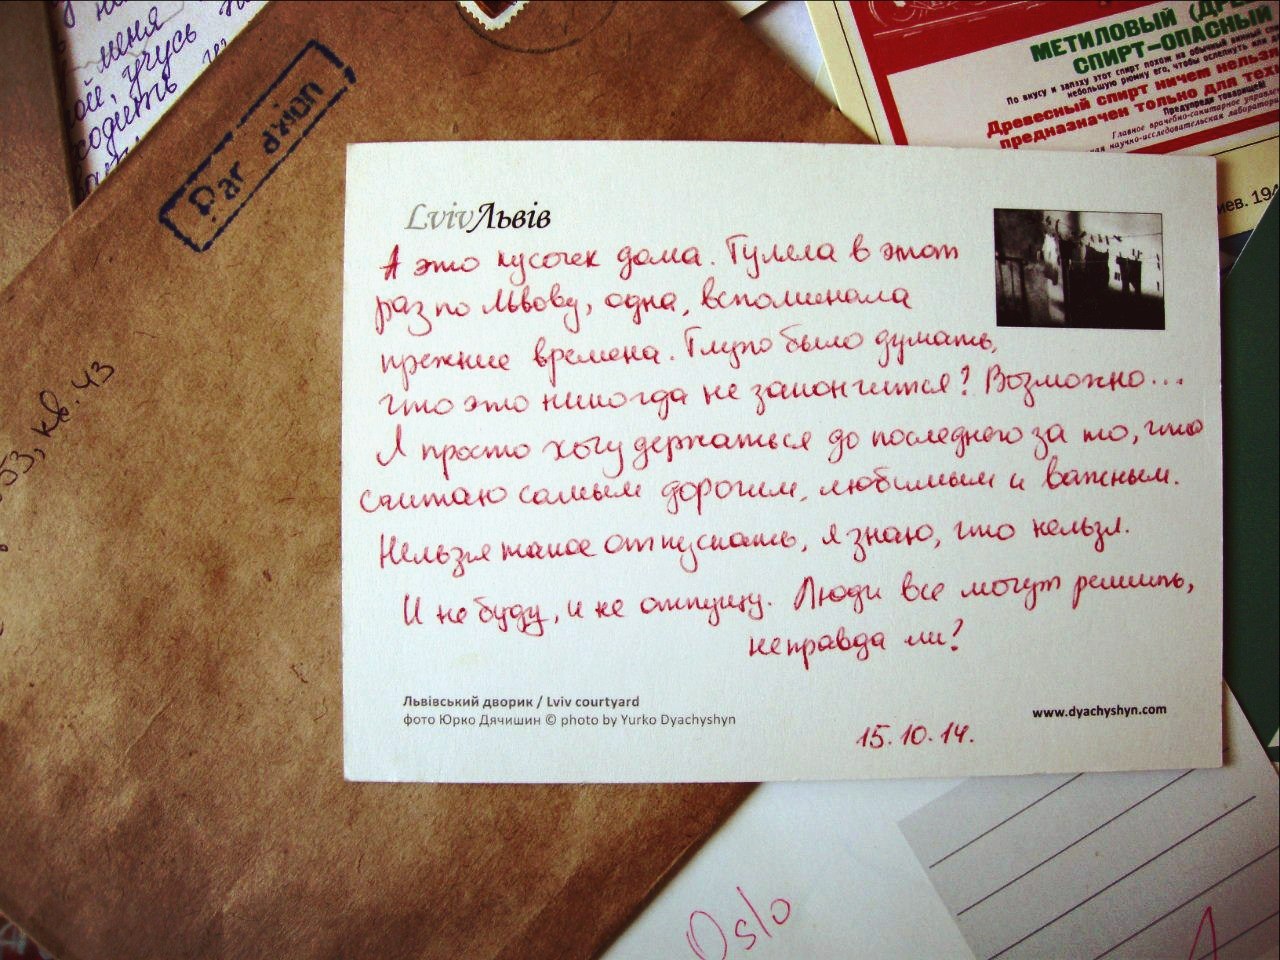 меня
учусь
Par avion
53, кв. 43
МЕТИЛОВЫЙ
СПИРТ-ОПАСНЫЙ
По вкусу и запаху этот спирт похож на обычный винный
небольшую рюмку его, чтобы ослепнуть или
Древесный спирт ничем нельзя
предназначен только для тех
Предупреди товарищей!
Главное врачебно-санитарное управл
научно-исследовательская лаборатор
иев. 194
LvivЛьвів
А это кусочек дома. Гуляла в этот
раз по Львову, одна, вспоминала
прежние времена. Глупо было думать,
что это никогда не закончится? Возможно...
Я просто хочу держаться до последнего за то, что
считаю самым дорогим, любимым и важным.
Нельзя такое отпускать, я знаю, что нельзя.
И не буду, и не отпущу. Люди все могут решить,
неправда ли?
Львівський дворик / Lviv courtyard
фото Юрко Дячишин © photo by Yurko Dyachyshyn
www.dyachyshyn.com
15.10.14.
Oslo